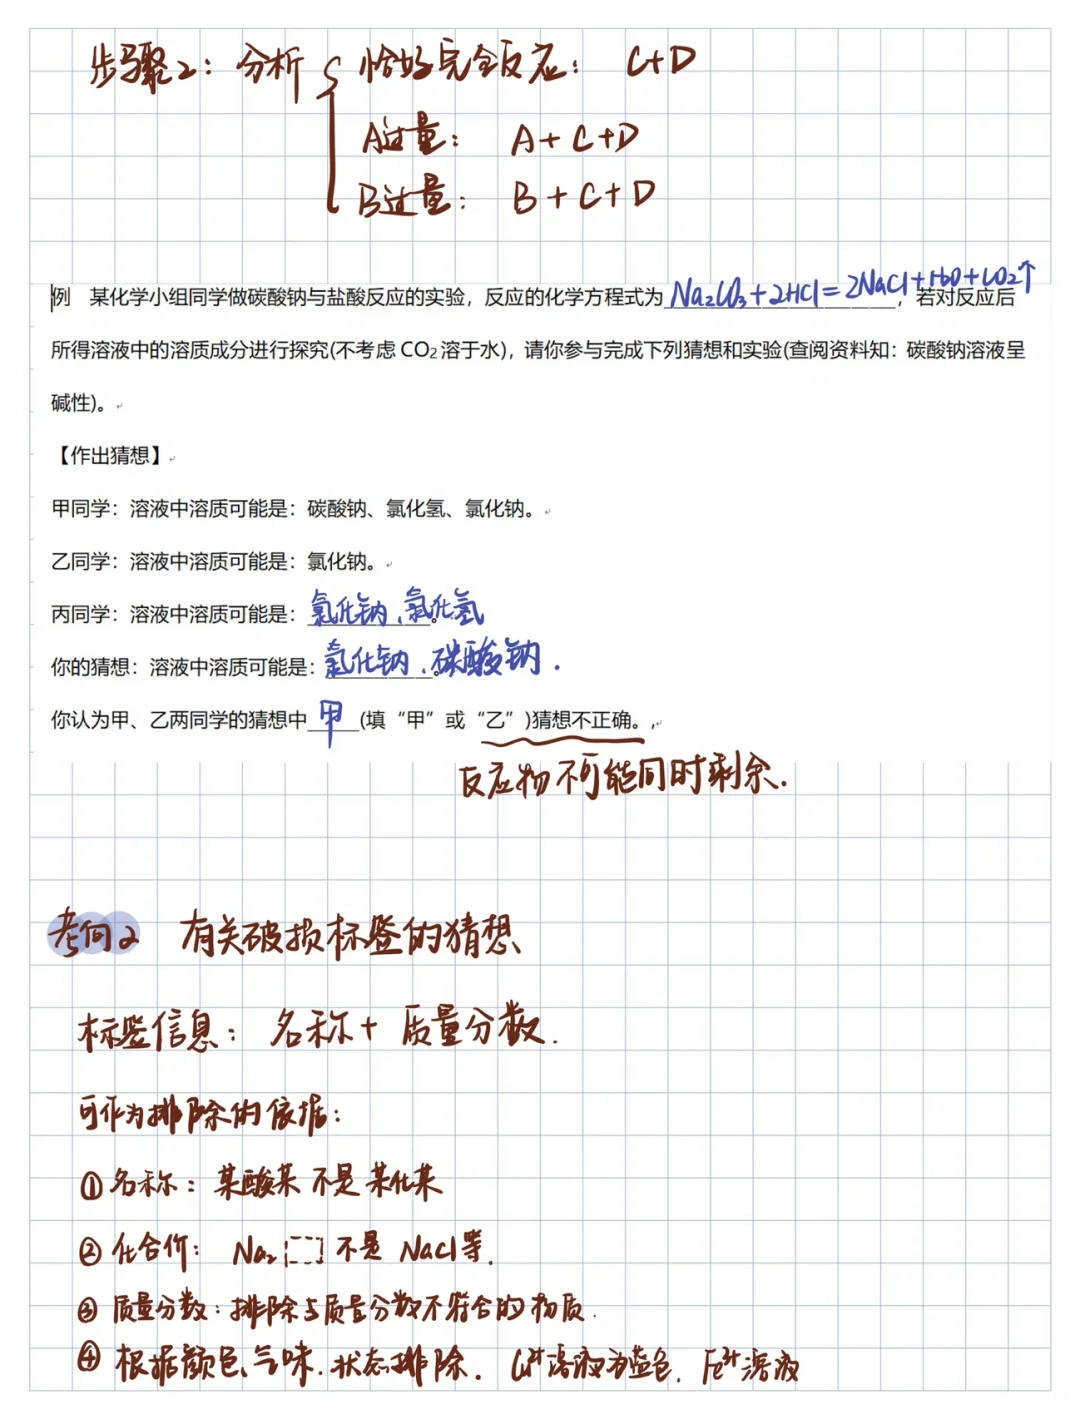 步骤2：分析 { 恰好完全反应： C+D
A过量： A+C+D
B过量： B+C+D
例 某化学小组同学做碳酸钠与盐酸反应的实验，反应的化学方程式为Na₂CO₃+2HCl=2NaCl+H₂O+CO₂↑，若对反应后
所得溶液中的溶质成分进行探究(不考虑 CO₂ 溶于水)，请你参与完成下列猜想和实验(查阅资料知：碳酸钠溶液呈
碱性)。
【作出猜想】
甲同学：溶液中溶质可能是：碳酸钠、氯化氢、氯化钠。
乙同学：溶液中溶质可能是：氯化钠。
丙同学：溶液中溶质可能是：氯化钠、氯化氢。
你的猜想：溶液中溶质可能是：氯化钠、碳酸钠。
你认为甲、乙两同学的猜想中 甲 (填“甲”或“乙”)猜想不正确。,
反应物不可能同时剩余.
考向2 有关破损标签的猜想
标签信息：名称+质量分数.
可作为排除的依据：
①名称：某酸某 不是 某化某
②化合价： Na₂[ ] 不是 NaCl等.
③质量分数：排除与质量分数不符合的物质.
④根据颜色、气味.状态排除. Cu²⁺溶液为蓝色. Fe²⁺溶液